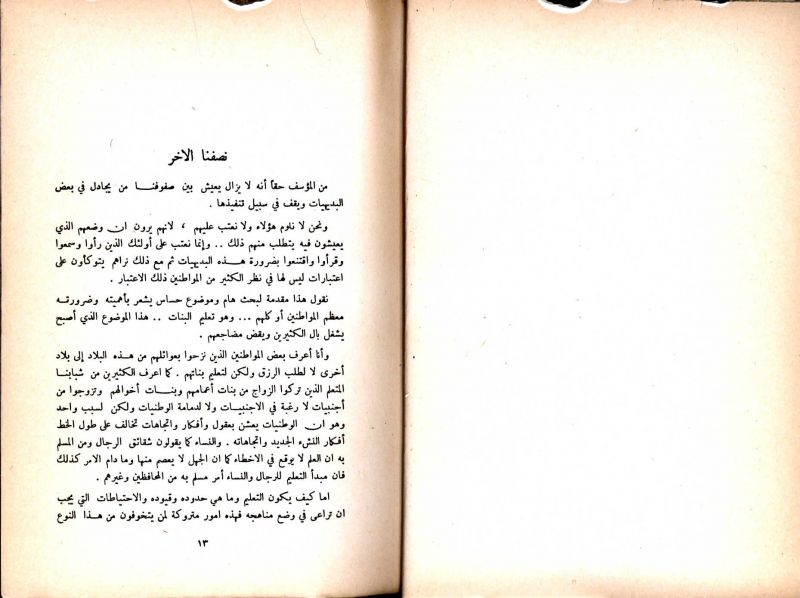 نصفنا الاخر
من المؤسف حقاً أنه لا يزال يعيش بين صفوفنا من يجادل في بعض
البديهيات ويقف في سبيل تنفيذها .
ونحن لا نلوم هؤلاء ولا نعتب عليهم ، لانهم يرون ان وضعهم الذي
يعيشون فيه يتطلب منهم ذلك .. وإنما نعتب على أولئك الذين رأوا وسمعوا
وقرأوا واقتنعوا بضرورة هذه البديهيات ثم مع ذلك نراهم يتوكأون على
اعتبارات ليس لها في نظر الكثير من المواطنين ذلك الاعتبار .
نقول هذا مقدمة لبحث هام وموضوع حساس يشعر بأهميته وضرورته
معظم المواطنين أو كلهم ... وهو تعليم البنات .. هذا الموضوع الذي أصبح
يشغل بال الكثيرين ويقض مضاجعهم .
وأنا أعرف بعض المواطنين الذين نزحوا بعوائلهم من هذه البلاد إلى بلاد
أخرى لا لطلب الرزق ولكن لتعليم بناتهم . كما اعرف الكثيرين من شبابنا
المتعلم الذين تركوا الزواج من بنات أعمامهم وبنات أخوالهم وتزوجوا من
أجنبيات لا رغبة في الاجنبيات ولا لدمامة الوطنيات ولكن لسبب واحد
وهو ان الوطنيات يعشن بعقول وأفكار واتجاهات تخالف على طول الخط
أفكار النشء الجديد واتجاهاته . والنساء كما يقولون شقائق الرجال ومن المسلم
به ان العلم لا يوقع في الاخطاء كما ان الجهل لا يعصم منها وما دام الامر كذلك
فان مبدأ التعليم للرجال والنساء أمر مسلم به من المحافظين وغيرهم .
اما كيف يكون التعليم وما هي حدوده وقيوده والاحتياطات التي يجب
ان تراعى في وضع مناهجه فهذه امور متروكة لمن يتخوفون من هذا النوع
١٣